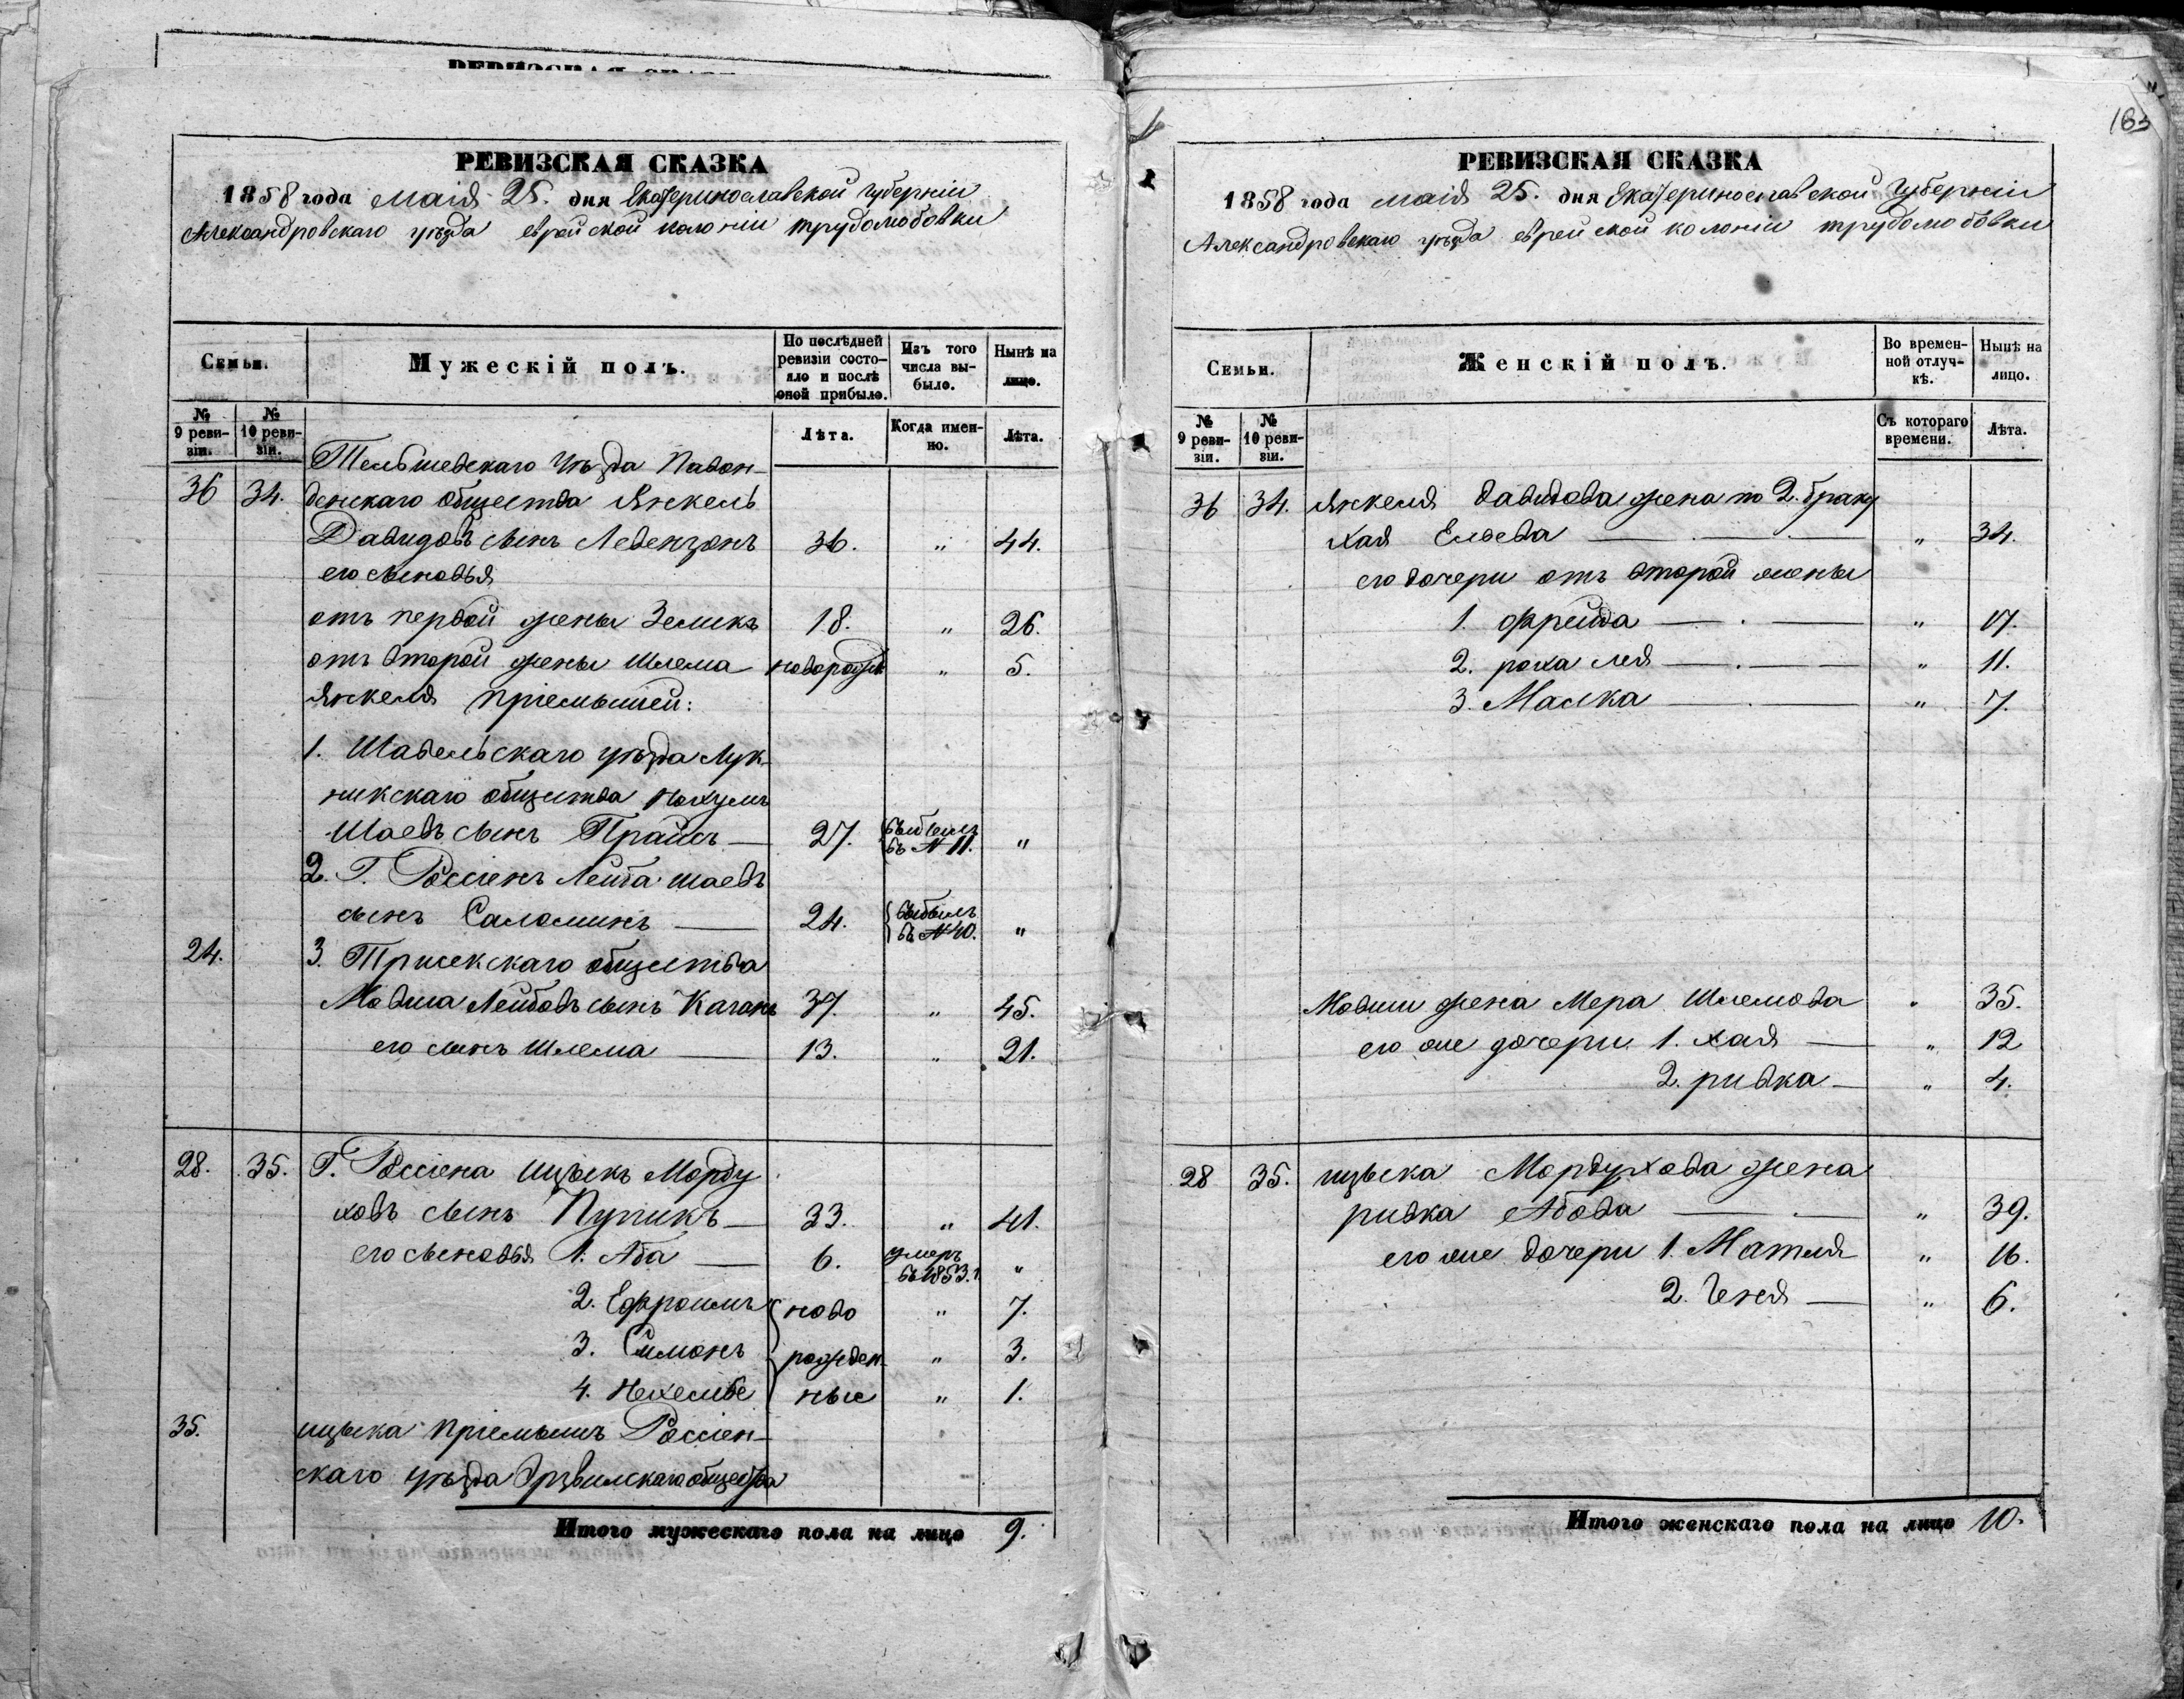 РЕВИЗСКАЯ СКАЗКА
1858 года Маія 25. дня Екатеринославской Губерніи
Александровскаго уѣзда еврейской колоніи трудолюбовки
Семьи.
Мужескій полъ.
По послѣдней ревизіи состояло и послѣ оной прибыло.
Изъ того числа выбыло.
Нынѣ на лицо.
№ 9 ревизіи.
№ 10 ревизіи.
Лѣта.
Когда именно.
Лѣта.
Тельшевскаго Уѣзда Павон-
36 34. денскаго общества Янкель
Давидовъ сынъ Левензонъ 36. " 44.
его сыновья
отъ первой жены Зеликъ 18. " 26.
отъ второй жены Шлема новорожд " 5.
Янкеля пріемышей:
1. Шавельскаго уѣзда Лук-
никскаго общества Нохумъ
Шаевъ сынъ Прайсъ — 27. выбылъ въ № 11. "
2. Г. Россіенъ Лейба Шаевъ
сынъ Саломинъ — 24. выбылъ въ № 40. "
24. 3. Тришкскаго общества
Мовша Лейбовъ сынъ Каганъ 37. " 45.
его сынъ Шлема — 13. " 21.
28. 35. Г. Россіена ицыкъ Морду
ховъ сынъ Пупикъ — 33. " 41.
его сыновья 1. Аба — 6. умеръ въ 1853. г. "
2. Ефроимъ ново " 7.
3. Симонъ рожден " 3.
4. Нехемье ные " 1.
35. ицыка пріемышъ Россіен-
скаго уѣзда общества
Итого мужескаго пола на лицо 9.
183
РЕВИЗСКАЯ СКАЗКА
1858 года маія 25. дня Екатеринославской Губерніи
Александровскаго уѣзда еврейской колоніи трудолюбовки
Семьи.
Женскій полъ.
Во временной отлучкѣ.
Нынѣ на лицо.
№ 9 ревизіи.
№ 10 ревизіи.
Съ котораго времени.
Лѣта.
36 34. Янкеля Давидова жена по 2. браку
Хая Ельева — " 34.
его дочери отъ второй жены
1. Фрейда — " 17.
2. роха лея — " 11.
3. Малка — " 7.
Мовши жена Мера Шлемова " 35.
его же дочери 1. хая — " 12
2. ривка — " 4.
28 35. ицыка Мордухова жена
ривка Абова — " 39.
его же дочери 1. Матля " 16.
2. Геня — " 6.
Итого женскаго пола на лицо 10.